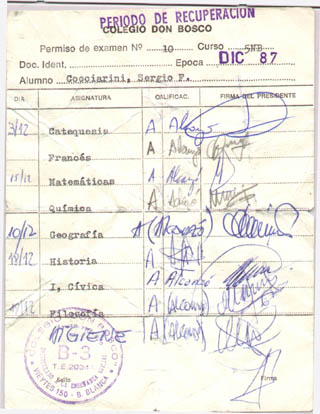 PERIODO DE RECUPERACION
COLEGIO DON BOSCO
Permiso de examen Nº 10 Curso 5NB
Doc. Ident. Epoca DIC 87
Alumno Cocciarini, Sergio F.
DIA ASIGNATURA CALIFICAC. FIRMA DEL PRESIDENTE
3/12 Catequesis A Alcanzó
Francés A Alcanzó
15/12 Matemáticas A Alcanzó
Química A Alcanzó
10/12 Geografía A (Alcanzó)
18/12 Historia A
I, Cívica A Alcanzó
Filosofía A (Alcanzó)
HIGIENE A (Alcanzó)
COLEGIO DON BOSCO
B-3
VIEYTES 150 - B. BLANCA
Sello Firma